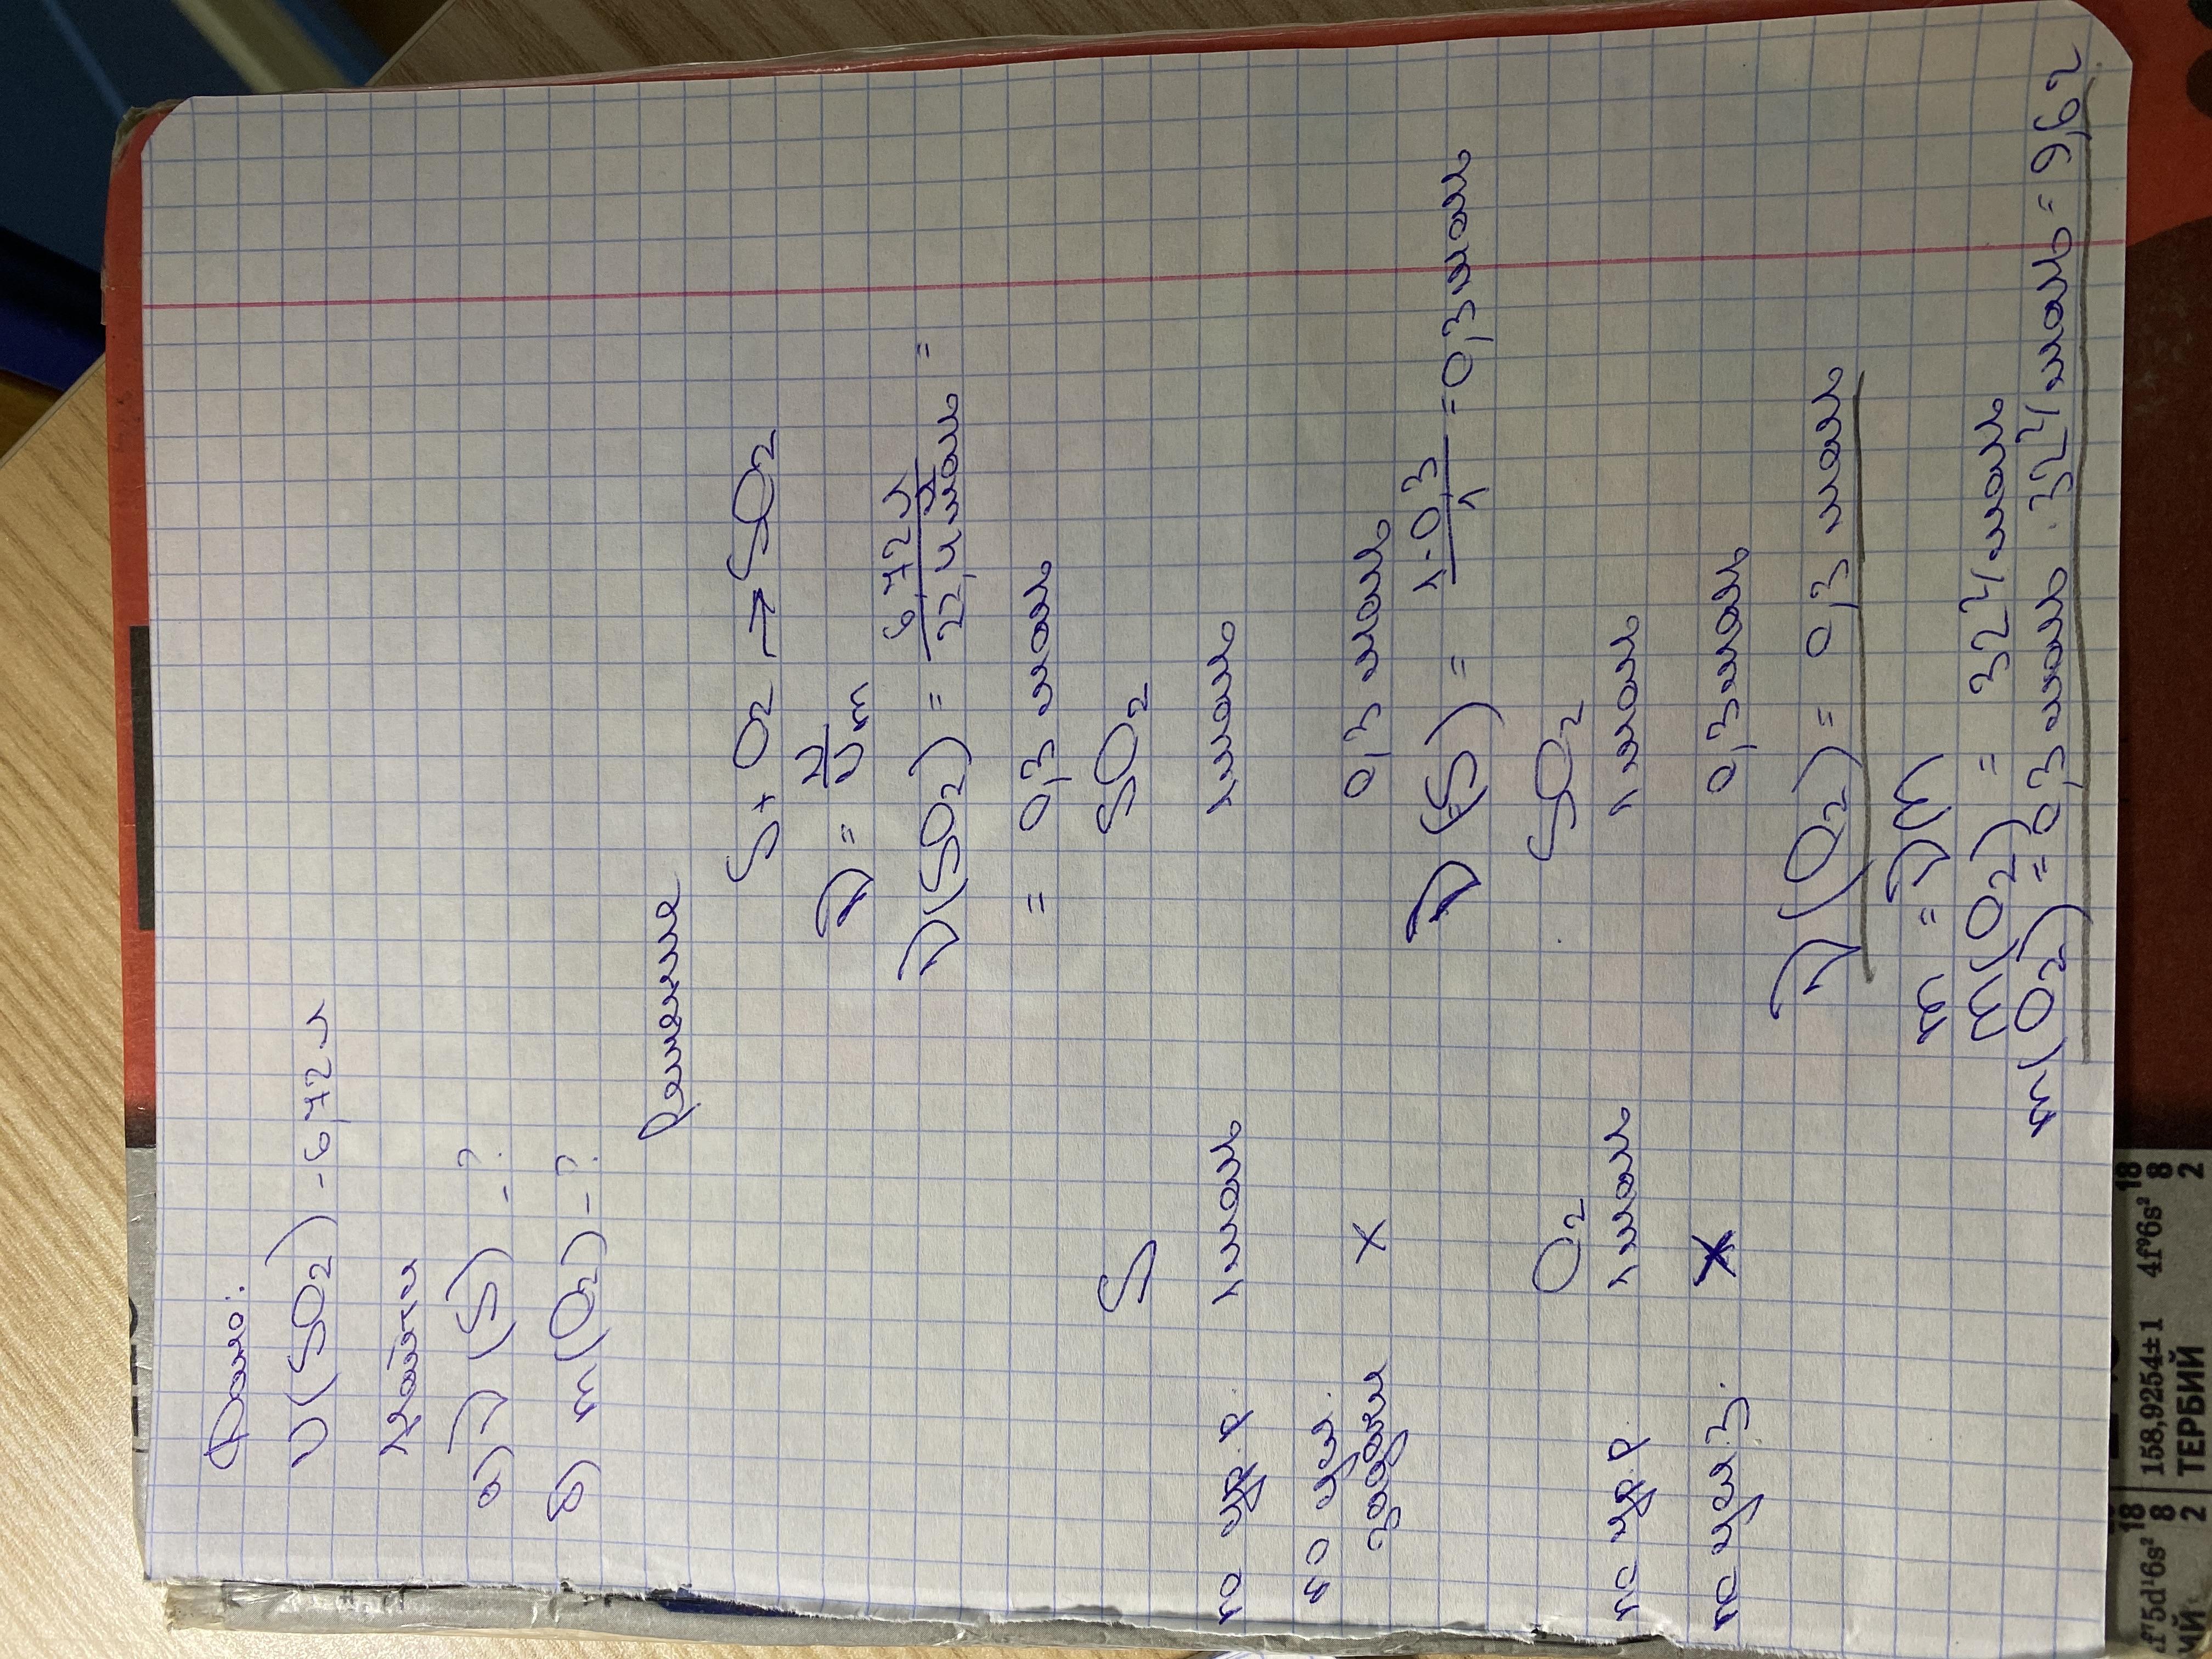 Дано:
V(SO2) - 6,72 л
Найти
а) ν(S) - ?
б) m(O2) - ?
Решение
S + O2 → SO2
ν = V/Vm
ν(SO2) = 6,72 л / 22,4 л/моль =
= 0,3 моль
S SO2
по ур. р. 1 моль 1 моль
по усл.
задачи x 0,3 моль
ν(S) = 1·0,3/1 = 0,3 моль
O2 SO2
по ур. р 1 моль 1 моль
по усл. з. x 0,3 моль
ν(O2) = 0,3 моль
m = νM
M(O2) = 32 г/моль
m(O2) = 0,3 моль · 32 г/моль = 9,6 г
4f⁷5d¹6s² 18 8 2
158,9254±1 4f⁹6s² 18 8 2
ТЕРБИЙ